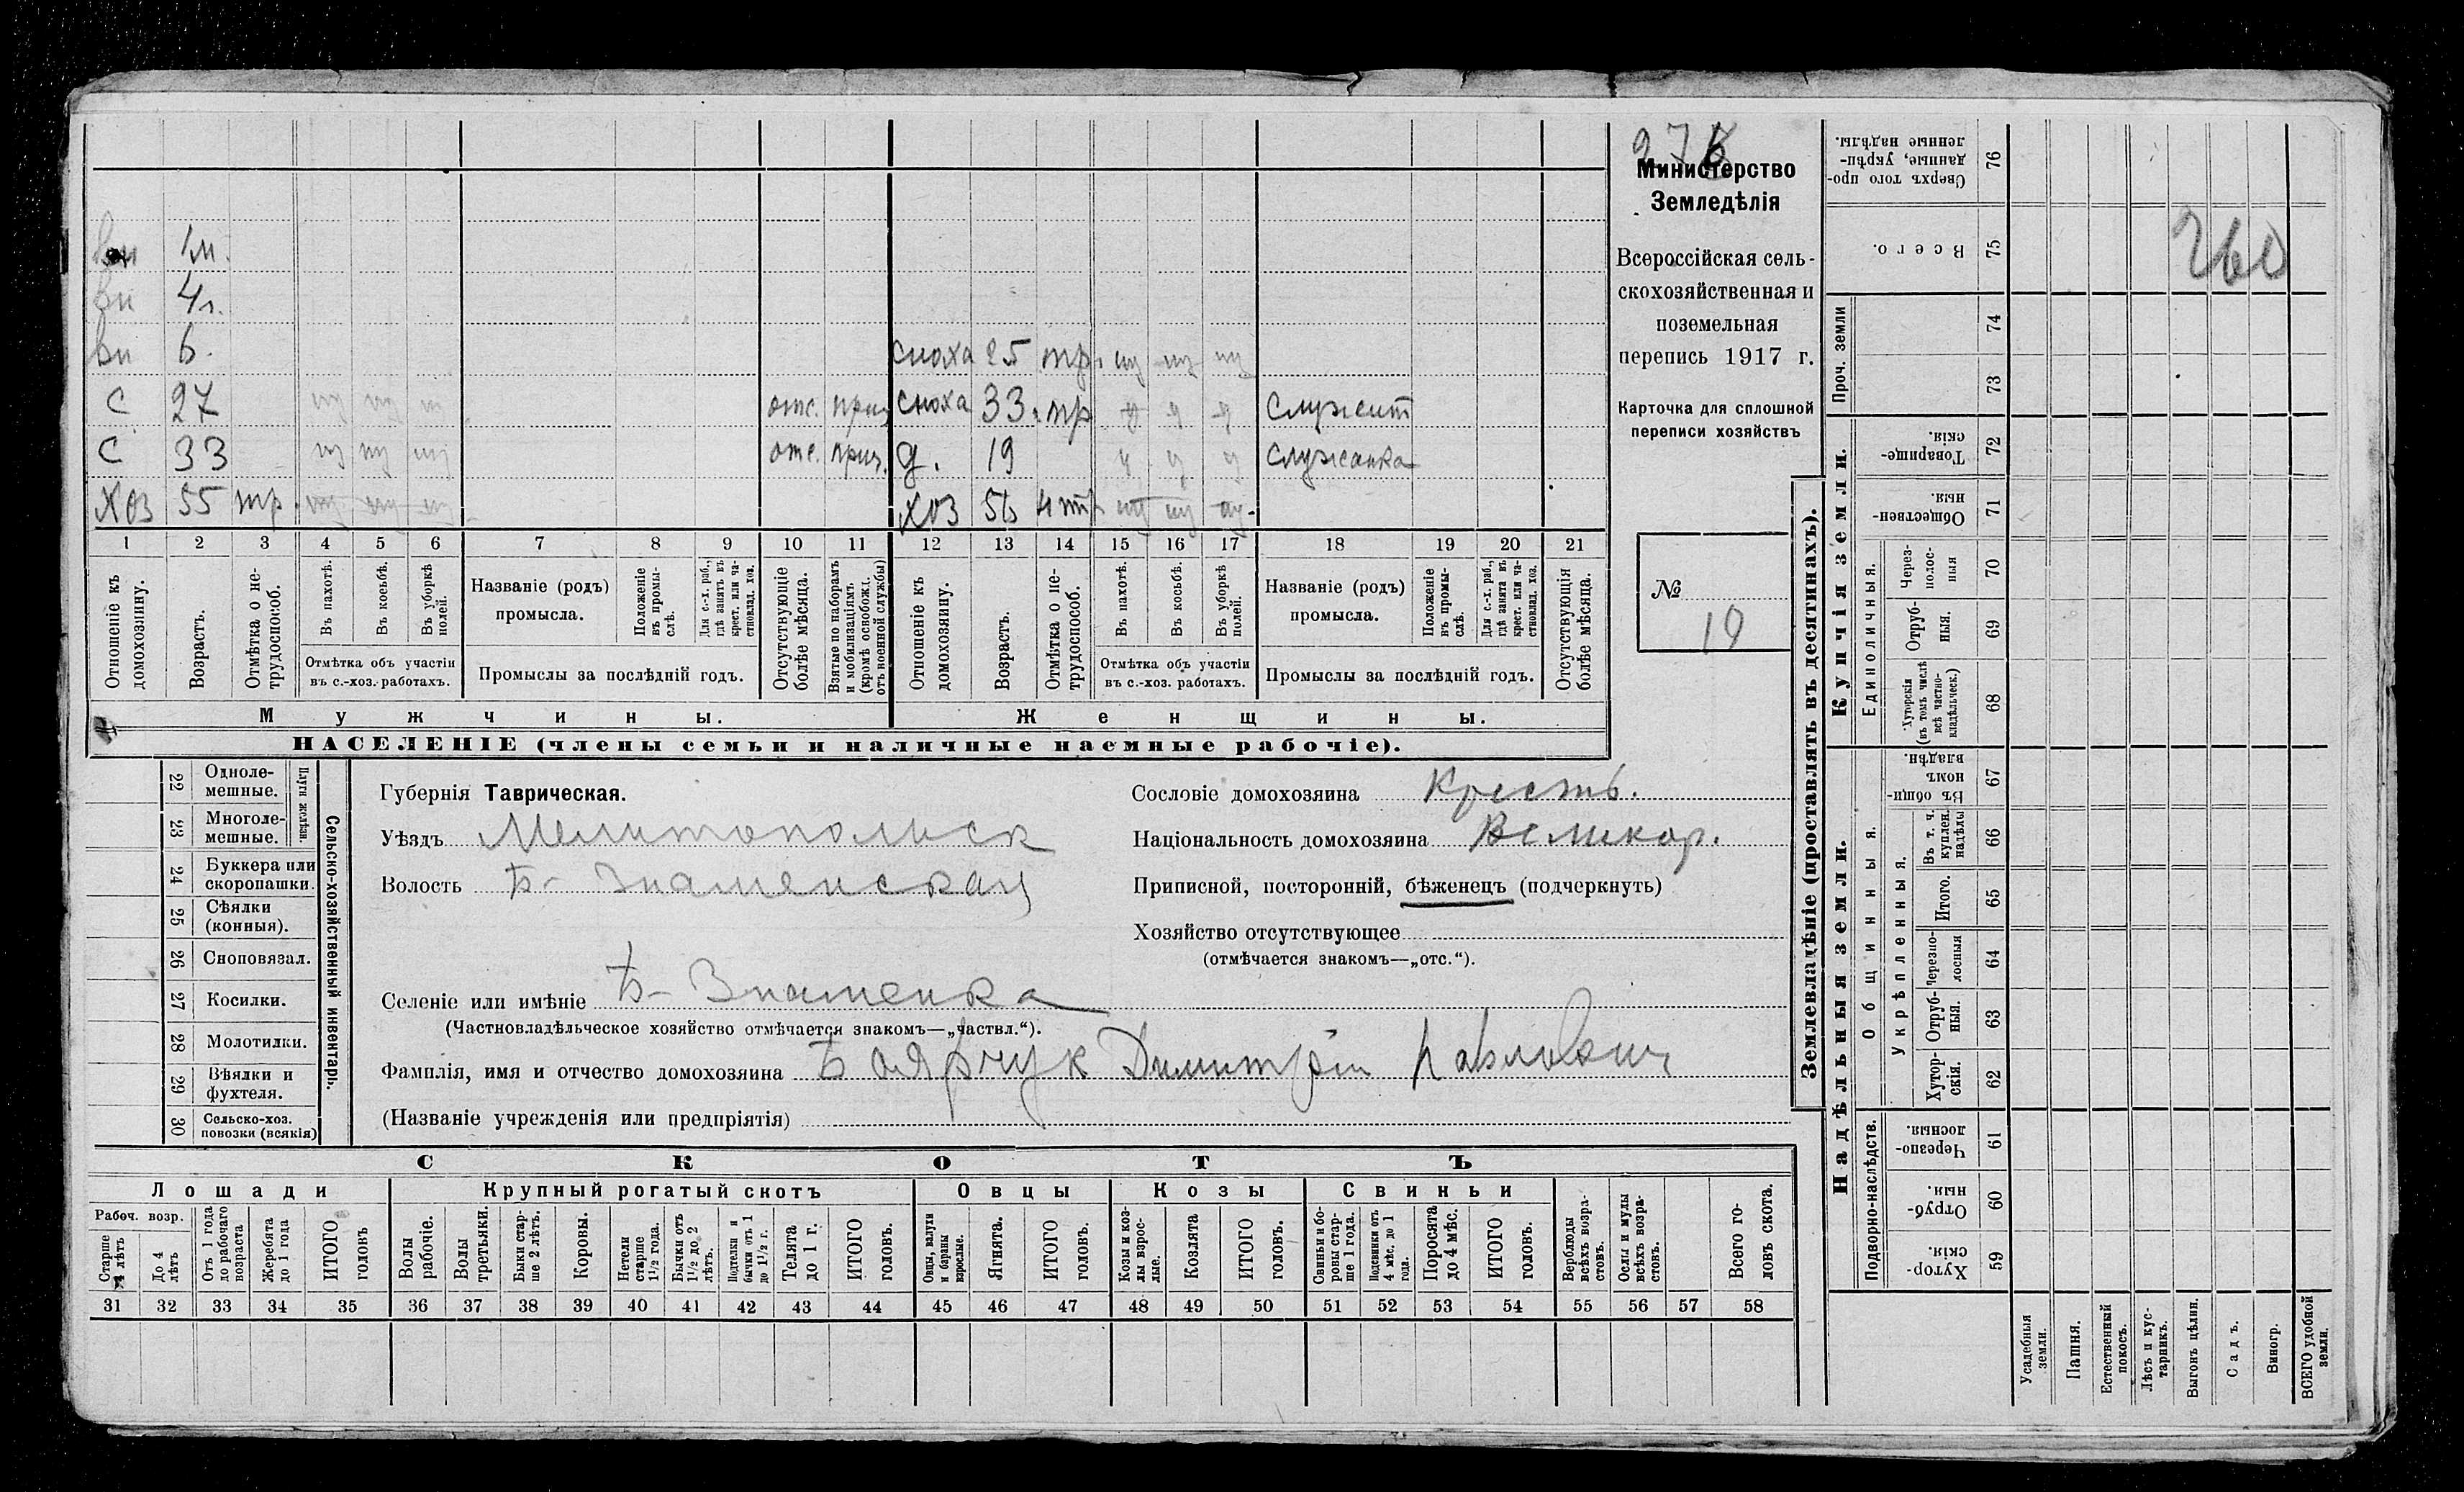 276
Министерство
Земледѣлія
Всероссійская сель-
скохозяйственная и
поземельная
перепись 1917 г.
Карточка для сплошной
переписи хозяйствъ
№
19
260
вн 1м.
вн 4г.
вн 6.
сноха 25 тр.
С 27 отс. приз. сноха 33. тр служит
С 33 отс. приз. д. 19 служанка
хоз 55 тр. хоз 56
1 2 3 4 5 6 7 8 9 10 11 12 13 14 15 16 17 18 19 20 21
Отношеніе къ домохозяину.
Возрастъ.
Отмѣтка о не-трудоспособ.
Въ пахотѣ.
Въ косьбѣ.
Въ уборкѣ полей.
Отмѣтка объ участіи въ с.-хоз. работахъ.
Названіе (родъ) промысла.
Положеніе въ промы-слѣ.
Для с.-х. раб., гдѣ занятъ въ крест. или ча-стновлад. хоз.
Промыслы за послѣдній годъ.
Отсутствующіе болѣе мѣсяца.
Взятые по наборамъ и мобилизаціямъ (кромѣ освобожд. отъ военной службы)
Отношеніе къ домохозяину.
Возрастъ.
Отмѣтка о не-трудоспособ.
Въ пахотѣ.
Въ косьбѣ.
Въ уборкѣ полей.
Отмѣтка объ участіи въ с.-хоз. работахъ.
Названіе (родъ) промысла.
Положеніе въ промы-слѣ.
Для с.-х. раб., гдѣ занята въ крест. или ча-стновлад. хоз.
Промыслы за послѣдній годъ.
Отсутствующія болѣе мѣсяца.
Мужчины.
Женщины.
НАСЕЛЕНІЕ (члены семьи и наличные наемные рабочіе).
Сельско-хозяйственный инвентарь.
Плуги желѣзн.
22 Одноле-мешные.
23 Многоле-мешные.
24 Буккера или скоропашки.
25 Сѣялки (конныя).
26 Сноповязал.
27 Косилки.
28 Молотилки.
29 Вѣялки и фухтеля.
30 Сельско-хоз. повозки (всякія)
Губернія Таврическая.
Уѣздъ Мелитопольск
Волость Б-Знаменская
Селеніе или имѣніе Б-Знаменка
(Частновладѣльческое хозяйство отмѣчается знакомъ—„частвл.“).
Фамилія, имя и отчество домохозяина Боярчук Димитрій Павлович
(Названіе учрежденія или предпріятія)
Сословіе домохозяина Крестъ.
Національность домохозяина Великор.
Приписной, посторонній, бѣженецъ (подчеркнуть)
Хозяйство отсутствующее
(отмѣчается знакомъ—„отс.“).
СКОТЪ
Лошади
Крупный рогатый скотъ
Овцы
Козы
Свиньи
Рабоч. возр.
Старше 4 лѣтъ
До 4 лѣтъ
Отъ 1 года до рабочаго возраста
Жеребята до 1 года
ИТОГО головъ
Волы рабочіе.
Волы третьяки.
Быки стар-ше 2 лѣтъ.
Коровы.
Нетели старше 1½ года.
Бычки отъ 1½ до 2 лѣтъ.
Подтелки и бычки отъ 1 до 1½ г.
Телята до 1 г.
ИТОГО головъ.
Овцы, валухи и бараны взрослые.
Ягнята.
ИТОГО головъ.
Козы и коз-лы взрос-лые.
Козлята
ИТОГО головъ.
Свиньи и бо-ровы стар-ше 1 года.
Подсвинки отъ 4 мѣс. до 1 года.
Поросята до 4 мѣс.
ИТОГО головъ.
Верблюды всѣхъ возра-стовъ.
Ослы и мулы всѣхъ возра-стовъ.
Всего го-ловъ скота.
31 32 33 34 35 36 37 38 39 40 41 42 43 44 45 46 47 48 49 50 51 52 53 54 55 56 57 58
Землевладѣніе (проставлять въ десятинахъ).
Купчія земли.
Надѣльныя земли.
Сверхъ того про-данные, укрѣп-ленные надѣлы. 76
Всего. 75
Проч. земли
74
73
Товарище-скія. 72
Обществен-ныя. 71
Единоличныя.
Через-полос-ныя 70
Отруб-ныя. 69
Хуторскія (въ томъ числѣ всѣ частно-владѣльческ.) 68
Общинныя.
Въ общин-номъ владѣн. 67
Укрѣпленныя.
Въ т. ч. куплен. надѣлы 66
Итого. 65
Черезпо-лосныя 64
Отруб-ныя. 63
Хутор-скія. 62
Подворно-наслѣдств.
Черезпо-лосныя. 61
Отруб-ныя. 60
Хутор-скія. 59
Усадебныя земли.
Пашня.
Естественный покосъ.
Лѣсъ и кус-тарникъ.
Выгонъ цѣлин.
Садъ.
Виногр.
ВСЕГО удобной земли.